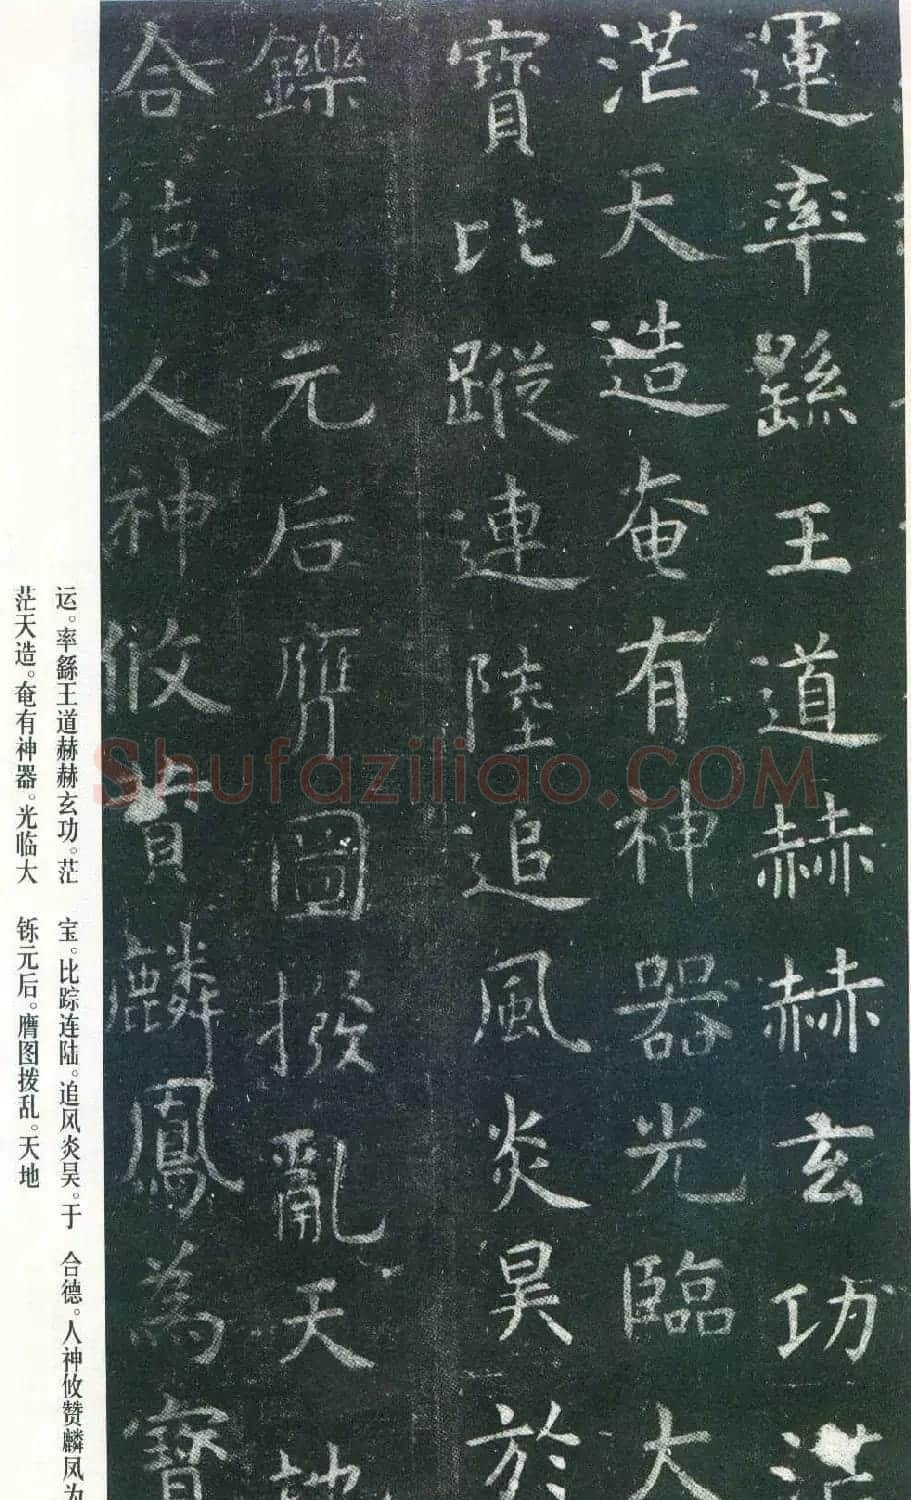 運率繇王道赫赫玄功茫
茫天造奄有神器光臨大
寶比蹤連陸追風炎昊於
鑠元后膺圖撥亂天地
合德人神攸贊麟鳳為寶
运。率繇王道赫赫玄功。茫
茫天造。奄有神器。光临大
宝。比踪连陆。追风炎昊。于
铄元后。膺图拨乱。天地
合德。人神攸赞麟凤为
Shufaziliao.COM